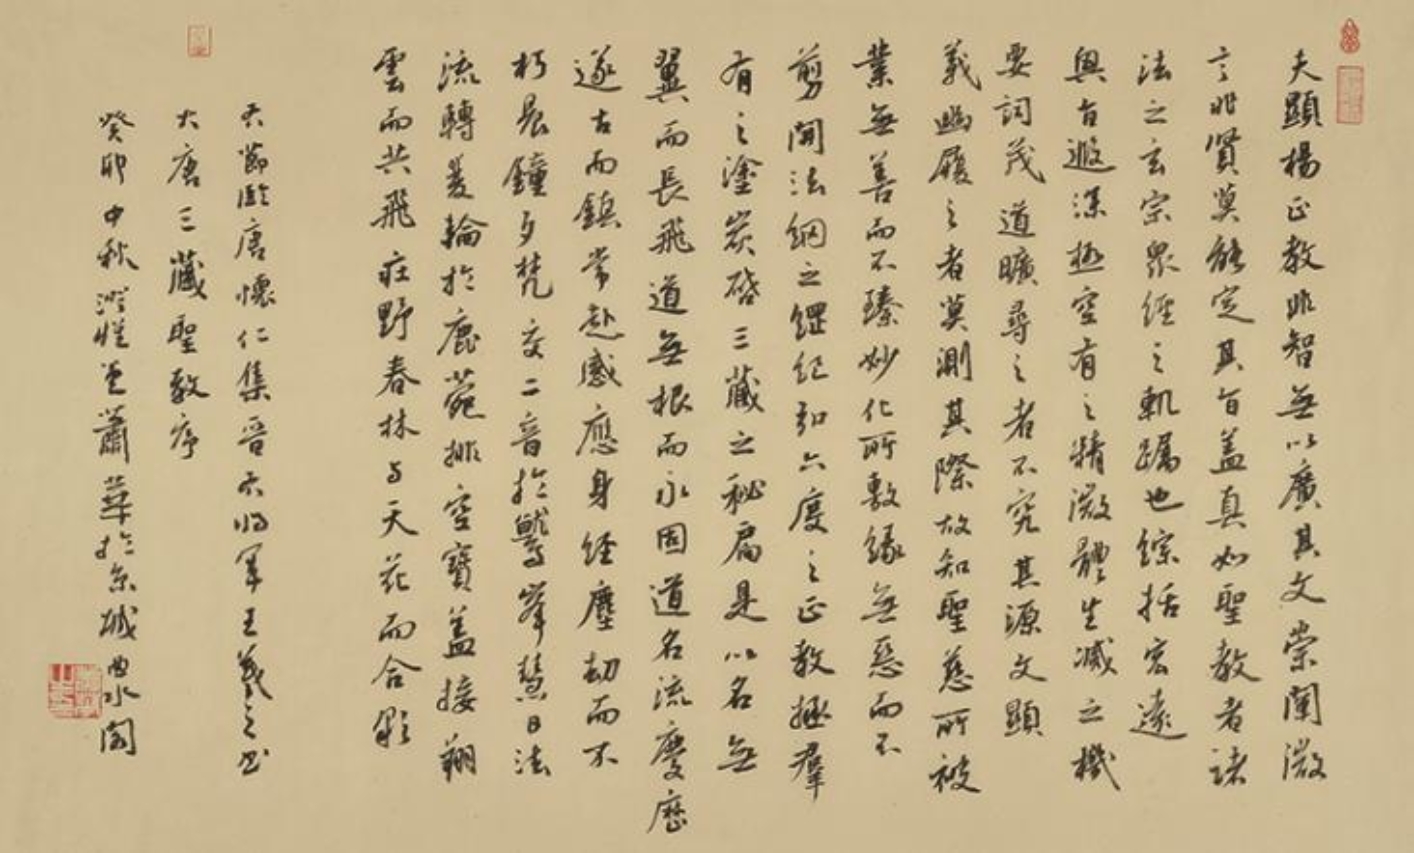 夫顯揚正教非智無以廣其文崇闡微
言非賢莫能定其旨蓋真如聖教者諸
法之玄宗眾經之軌躅也綜括宏遠
奧旨遐深極空有之精微體生滅之機
要詞茂道曠尋之者不究其源文顯
義幽履之者莫測其際故知聖慈所被
業無善而不臻妙化所敷緣無惡而不
剪開法網之綱紀弘六度之正教拯羣
有之塗炭啓三藏之秘扃是以名無
翼而長飛道無根而永固道名流慶歷
遂古而鎮常赴感應身經塵劫而不
朽晨鐘夕梵交二音於鷲峯慧日法
流轉雙輪於鹿菀排空寶蓋接翔
雲而共飛莊野春林与天花而合彩
右節臨唐懷仁集晉右將軍王羲之書
大唐三藏聖教序
癸卯中秋 蕭華於京城曲水閣